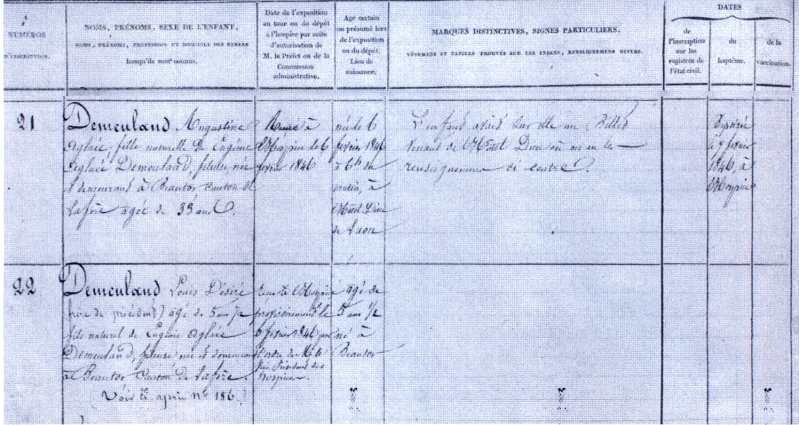 NUMÉROS
D'INSCRIPTION.
NOMS, PRÉNOMS, SEXE DE L'ENFANT,
NOMS, PRÉNOMS, PROFESSION ET DOMICILE DES PARENS
lorsqu'ils sont connus.
Date de l'exposition
au tour ou du dépôt
à l'hospice par suite
d'autorisation de
M. le Préfet ou de la
Commission
administrative.
Age certain
ou présumé lors
de l'exposition
ou du dépôt.
Lieu de
naissance.
MARQUES DISTINCTIVES, SIGNES PARTICULIERS,
VÊTEMENS ET PAPIERS TROUVÉS SUR LES ENFANS, RENSEIGNEMENS DIVERS.
DATES
de
l'inscription
sur les
registres de
l'état civil.
du
baptême.
de la
vaccination.
21
Demeuland Augustine
Aglaé, fille naturelle de Eugénie
Aglaé Demeuland, fileuse, née
et demeurant à Beautor canton de
Lafère agée de 33 ans
à
l'hospice le 6
février 1846
née le 6
février 1846
à 6 h du
matin, à
l'hôtel Dieu
de Laon
L'enfant avait sur elle un Billet
venant de l'hôtel Dieu où on a
renseignemens ci contre.
le 7 février
1846, à
l'hospice
22
Demeuland Louis Désiré
frère de précédent) agé de 5 ans 1/2
fils naturel de Eugénie Aglaé
Demeuland, fileuse née et demeurant
à Beautor Canton de Lafère.
(Voir ci après N° 186.)
provisoirement le
6 février 1846 par
l'ordre de M. le
Vice Président des
hospices.
agé de
5 ans 1/2
né à
Beautor